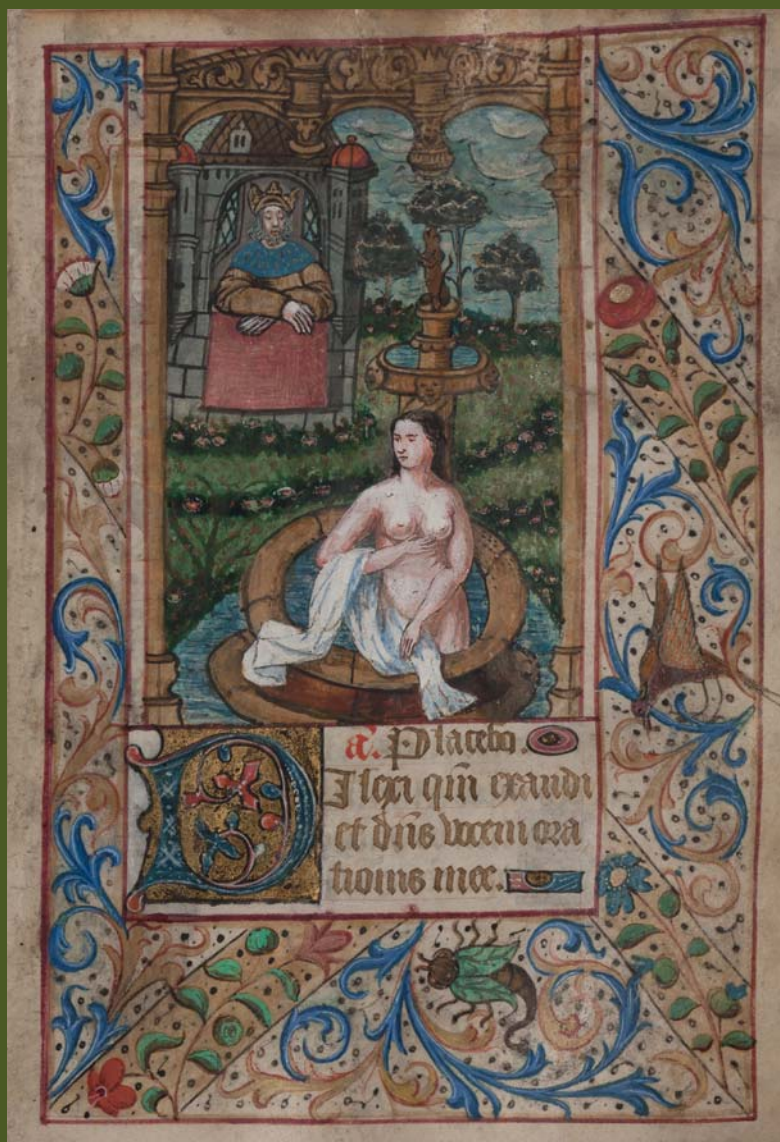 a. Placebo.
Dilexi qm̄ exaudi
et dn̄s vocem ora
tionis mee.